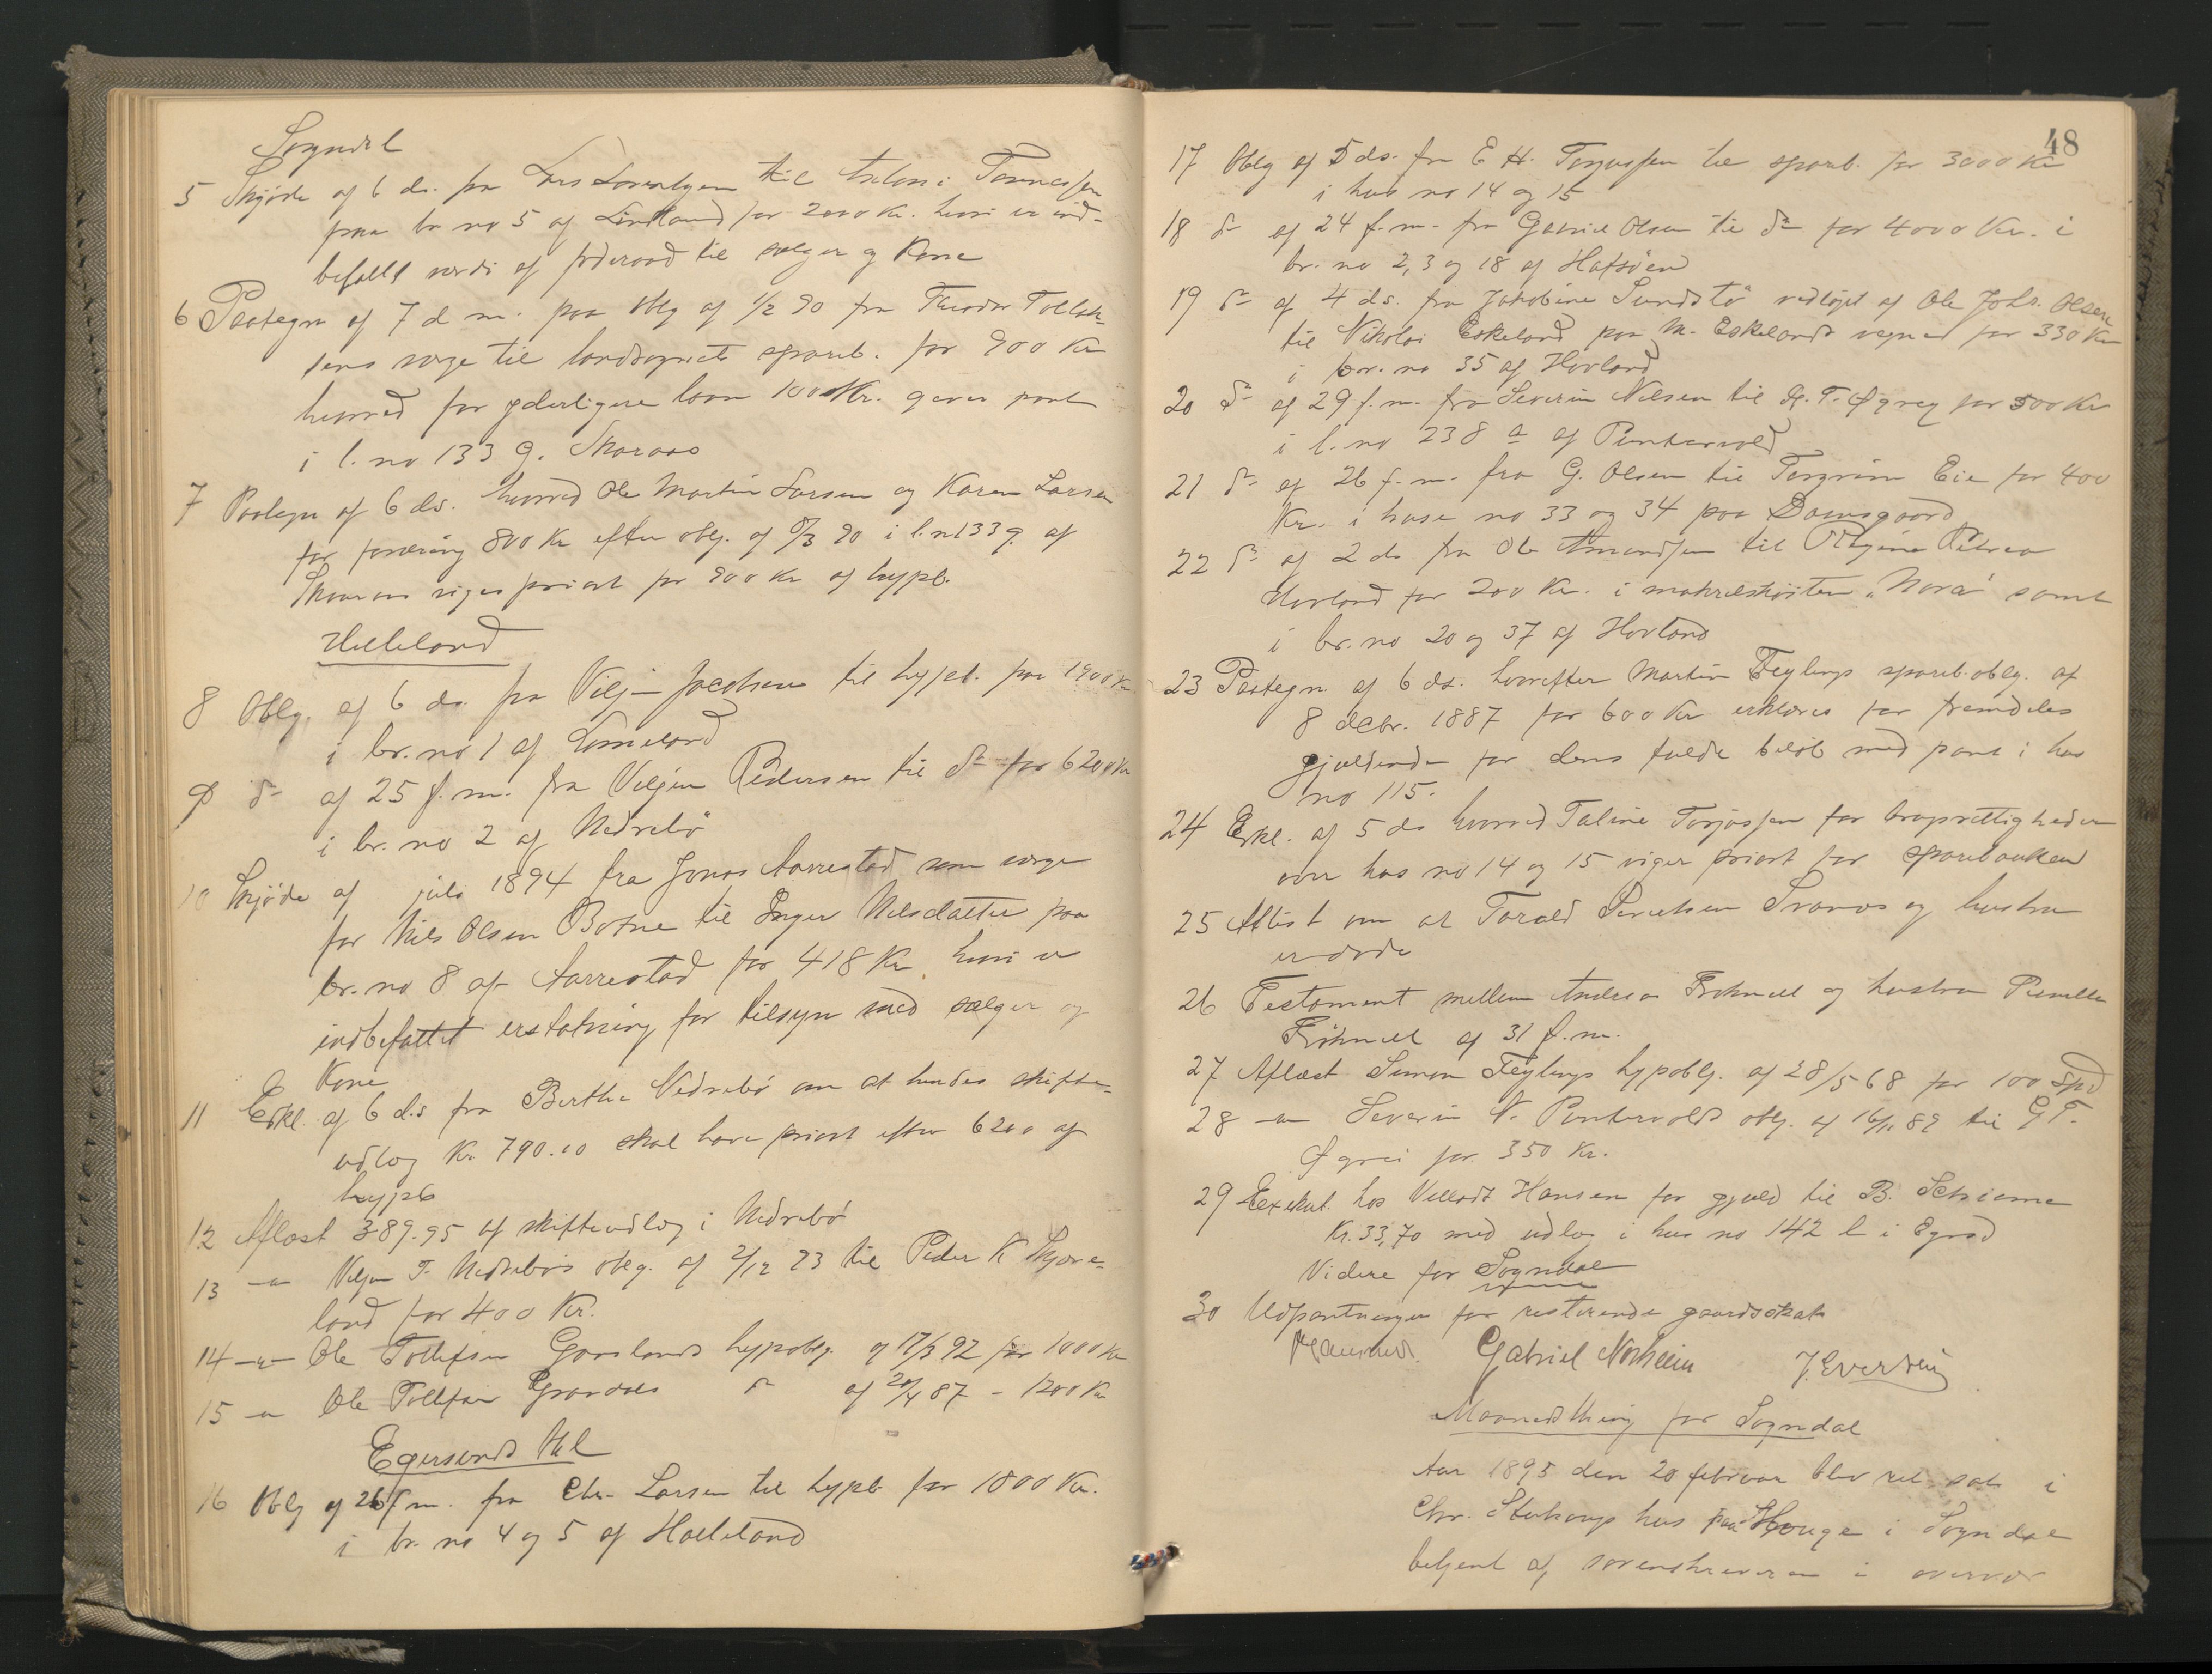 Sogndal
5 Skjøde af 6 ds. fra Lars til Tønnessen
paa br no 5 af Lindland for 2000 Kr. hvori er ind-
befattet værdi af föderaad til sælger og Kone
6 Paategn af 7 d m. paa oblg af 1/2 90 fra Theodor Tollak-
sens verge til landsognets spareb. for 900 Kr
hvorved for yderligere laan 100 Kr. gives pant
i l. no 133 g. Skaraas
7 Paategn af 6 ds. hvorved Ole Martin Larsen og Karen Larsen
for fordring 800 Kr efter oblg. af 8/3 90 i l.n 133 g. af
Skaraas viger priort for 900 Kr af hypb.
Helleland
8 Oblg. af 6 ds. fra Viljen Jacobsen til hypb. for 1900 Kr
i br. no 1 af Lomeland
9 do af 25 f.m. fra Viljen Pedersen til do for 6200 Kr
i br. no 2 af Nedrebö
10 Skjøde af juli 1894 fra Jonas Aarrestad som verge
for Nils Olsen Botne til Inger Nilsdatter paa
br. no 8 af Aarrestad for 418 Kr. hvori er
indbefattet erstatning for tilsyn med sælger og
Kone
11 Erkl. af 6 d.s fra Berthe Nedrebø om at hendes skifte-
udlæg Kr 790.10 skal have priort efter 6200 af
hypb
12 Aflæst 389.95 af skifteudlæg i Nedrebø
13 -"- Viljen T. Nedrebös oblg. af 2/12 93 til Peder K Skjøre-
land for 400 Kr.
14 -"- Ole Tollefsen Gaaslands hypoblg. af 17/3 92 for 1000 Kr
15 -"- Ole Tollefsen do af 20/4 87 - 1200 Kr
Egersunds
16 Oblg af 26 f m. fra Chr. Larsen til hypb for 1800 Kr.
i br. no 4 og 5 af Hælleland
48
17 Oblg af 5 ds. fra E H. Torjussen til spareb. for 3000 Kr
i hus no 14 og 15
18 do af 24 f.m. fra Gabriel Olsen til do for 4000 Kr. i
br. no 2, 3 og 18 af Hafsöen
19 do af 4 ds. fra Jakobine Sundstø vedtaget af Ole Johs. Olsen
til Nikolai Eskeland paa M. Eskelands vegne for 330 Kr
i br. no 35 af Hovland
20 do af 29 f.m. fra Severin Nilsen til G. T. Øgrey for 500 Kr
i l. no 238 a af Puntervold
21 do af 26 f.m. fra G. Olsen til Torgrim Eie for 400
Kr. i huse no 33 og 34 paa Damsgaard
22 do af 2 ds fra Ole Amundsen til Regine Petrea
Hovland for 200 Kr. i makrelskøiten "Nora" samt
i br. no 20 og 37 af Hovland
23 Paategn. af 6 ds. hvorefter Martin Feylings spareb.oblg. af
8 decbr. 1887 for 600 Kr erklæres for fremdeles
gjældende for dens fulde beløb med pant i hus
no 115.
24 Erkl. af 5 ds hvorved Taline Torjussen for brugsrettigheder
over hus no 14 og 15 viger priort for sparebanken
25 Attest om at Torald Svanes og hustru
er døde
26 Testament mellem Andreas Frøknell og hustru Pernille
Frøknell af 31 f.m.
27 Aflæst Simon Feylings hypoblg. af 28/5 68 for 100 Spd
28 -"- Severin N. Puntervolds oblg. af 16/11 89 til G T.
Øgrei for 350 Kr.
29 Exekut. hos Velladt Hansen for gjæld til B. Schiøme
Kr. 33,70 med udlæg i hus no 142 b i Egrsd
Videre for Sogndal
30 Udpantninger for resterende gaardsskat
Gabriel Norheim J. Evertsen
Maanedsthing for Sogndal
Aar 1895 den 20 februar blev ret sat i
Chr. hus paa Houge i Sogndal
betjent af sorenskriveren i overvær